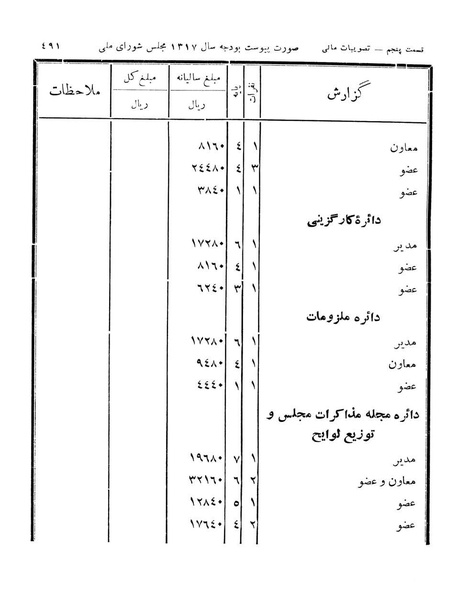 قسمت پنجم — تصویبات مالی صورت پیوست بودجه سال ۱۳۱۷ مجلس شورای ملی ٤۹۱
گزارش نفرات پایه مبلغ سالیانه مبلغ کل ملاحظات
ریال ریال
معاون ۱ ٤ ۸۱٦۰
عضو ۳ ٤ ۲٤٤۸۰
عضو ۱ ۱ ۳۸٤۰
دائرهٔ کارگزینی
مدیر ۱ ٦ ۱۷۲۸۰
عضو ۱ ٤ ۸۱٦۰
عضو ۱ ۳ ٦۲٤۰
دائره ملزومات
مدیر ۱ ٦ ۱۷۲۸۰
معاون ۱ ٤ ۹٤۸۰
عضو ۱ ۱ ٤٤٤۰
دائره مجله مذاکرات مجلس و
توزیع لوایح
مدیر ۱ ۷ ۱۹٦۸۰
معاون و عضو ۲ ٦ ۳۲۱٦۰
عضو ۱ ۵ ۱۲۸٤۰
عضو ۲ ٤ ۱۷٦٤۰